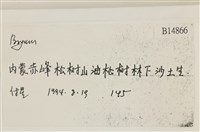 B14866
内蒙赤峰松树山油松树林下沙土生
1994.8.19 145